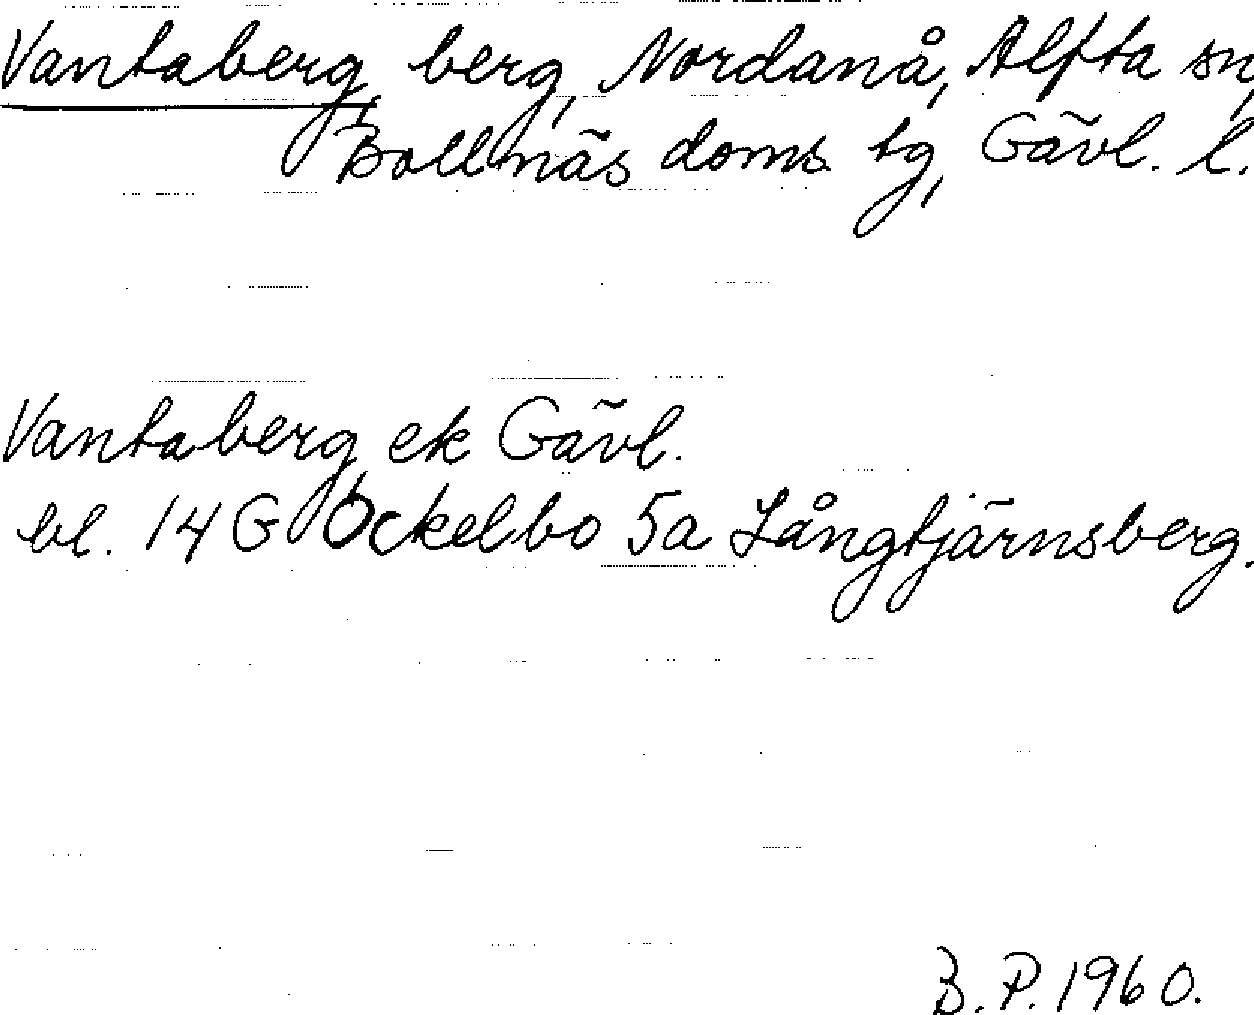 Vantaberg, berg, Nordanå, Alfta sn,
Bollnäs doms. tg, Gävl. l.
Vantaberg ek Gävl.
bl. 14 G Ockelbo 5a Långtjärnsberg.
B. P. 1960.